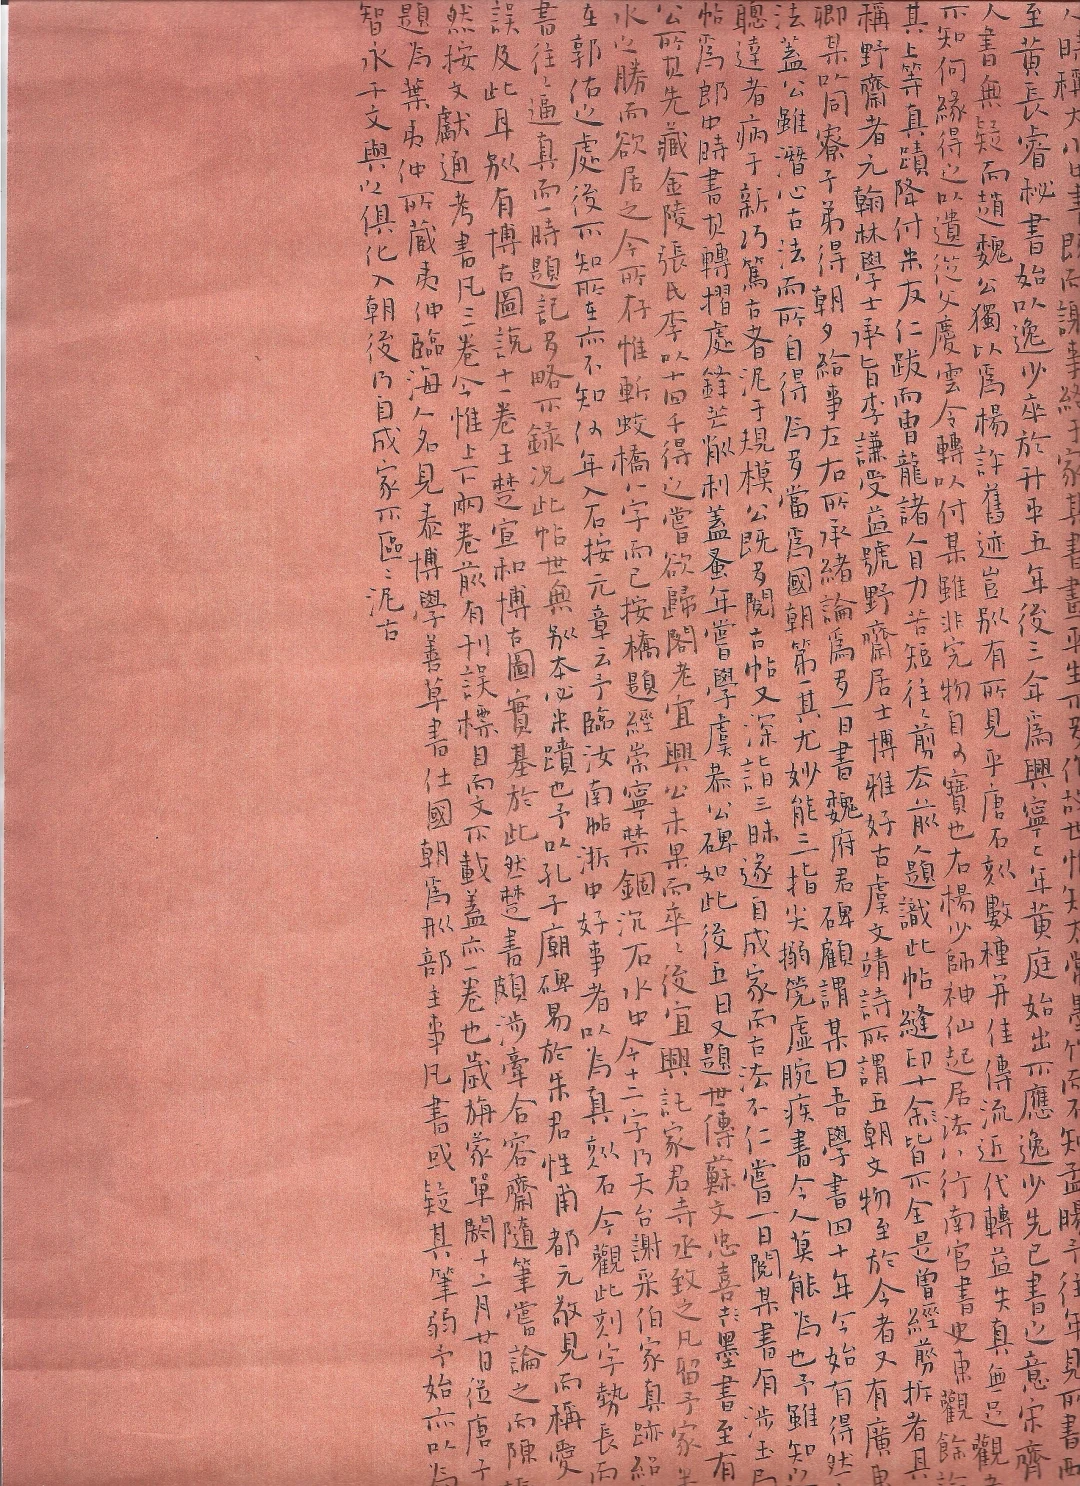 人時稱大小 畫即而謝事終于家其書畫平生不 作故世惟知太常墨竹而不知孟暘予往年見所書西
至黃長睿秘書始以逸少卒於升平五年後三年為興寧二年黃庭始出不應逸少先已書之意宋齊
人書無疑而趙魏公獨以為楊許舊迹豈別有所見乎唐石刻數種并佳傳流近代轉益失真無足觀
不知何緣得之以遺從父慶雲令轉以付某雖非完物自可寶也右楊少師神仙起居法八行南宮書史東觀餘論
其上等真蹟降付米友仁跋而曹龍諸人目力苦短往々剪去前人題識此帖縫印十餘皆不全是曾經剪拆者具
稱野齋者元翰林學士承旨李謙受益號野齋居士博雅好古虞文靖詩所謂五朝文物至於今者又有廣東
卿某以同寮子弟得朝夕給事左右所承緒論為多一日書魏府君碑顧謂某曰吾學書四十年今始有得然
法蓋公雖潛心古法而所自得為多當為國朝第一其尤妙能三指尖搦筦虛腕疾書今人莫能為也予雖知
聰達者病于新巧篤古者泥于規模公既多閱古帖又深詣三昧遂自成家而古法不仁嘗一日閱某書有涉玉局
帖為郎中時書其轉摺處鋒芒削利蓋蚤年嘗學虞恭公碑如此後五日又題 世傳蘇文忠喜墨書至有
公所其先藏金陵張氏李以十四千得之嘗欲歸閣老宜興公未果而卒々後宜興託家君寺丞致之凡留予家
水之勝而欲居之今所存惟斬蛟橋八字而已按橋題經崇寧禁錮沉石水中今十二字乃天台謝采伯家真跡紹
在郭佑之處後不知所在亦不知何年入石按元章云予臨汝南帖浙中好事者以為真刻石今觀此刻字勢長而
書往々逼真而一時題記多略不錄況此帖世無別本必米蹟也予以孔子廟碑易於朱君性甫都元敬見而稱愛
誤及此耳別有博古圖說十一卷王楚宣和博古圖實基於此然楚書頗涉牽合容齋隨筆嘗論之而陳
然按文獻通考書凡三卷今惟上下兩卷前有刊誤標目而文不載蓋亦一卷也歲旃蒙單閼十二月廿日從唐子
題為葉夷仲所藏夷仲臨海人名見泰博學善草書仕國朝為刑部主事凡書或疑其筆弱予始亦以為
智永千文與之俱化入朝後乃自成家不區々泥古